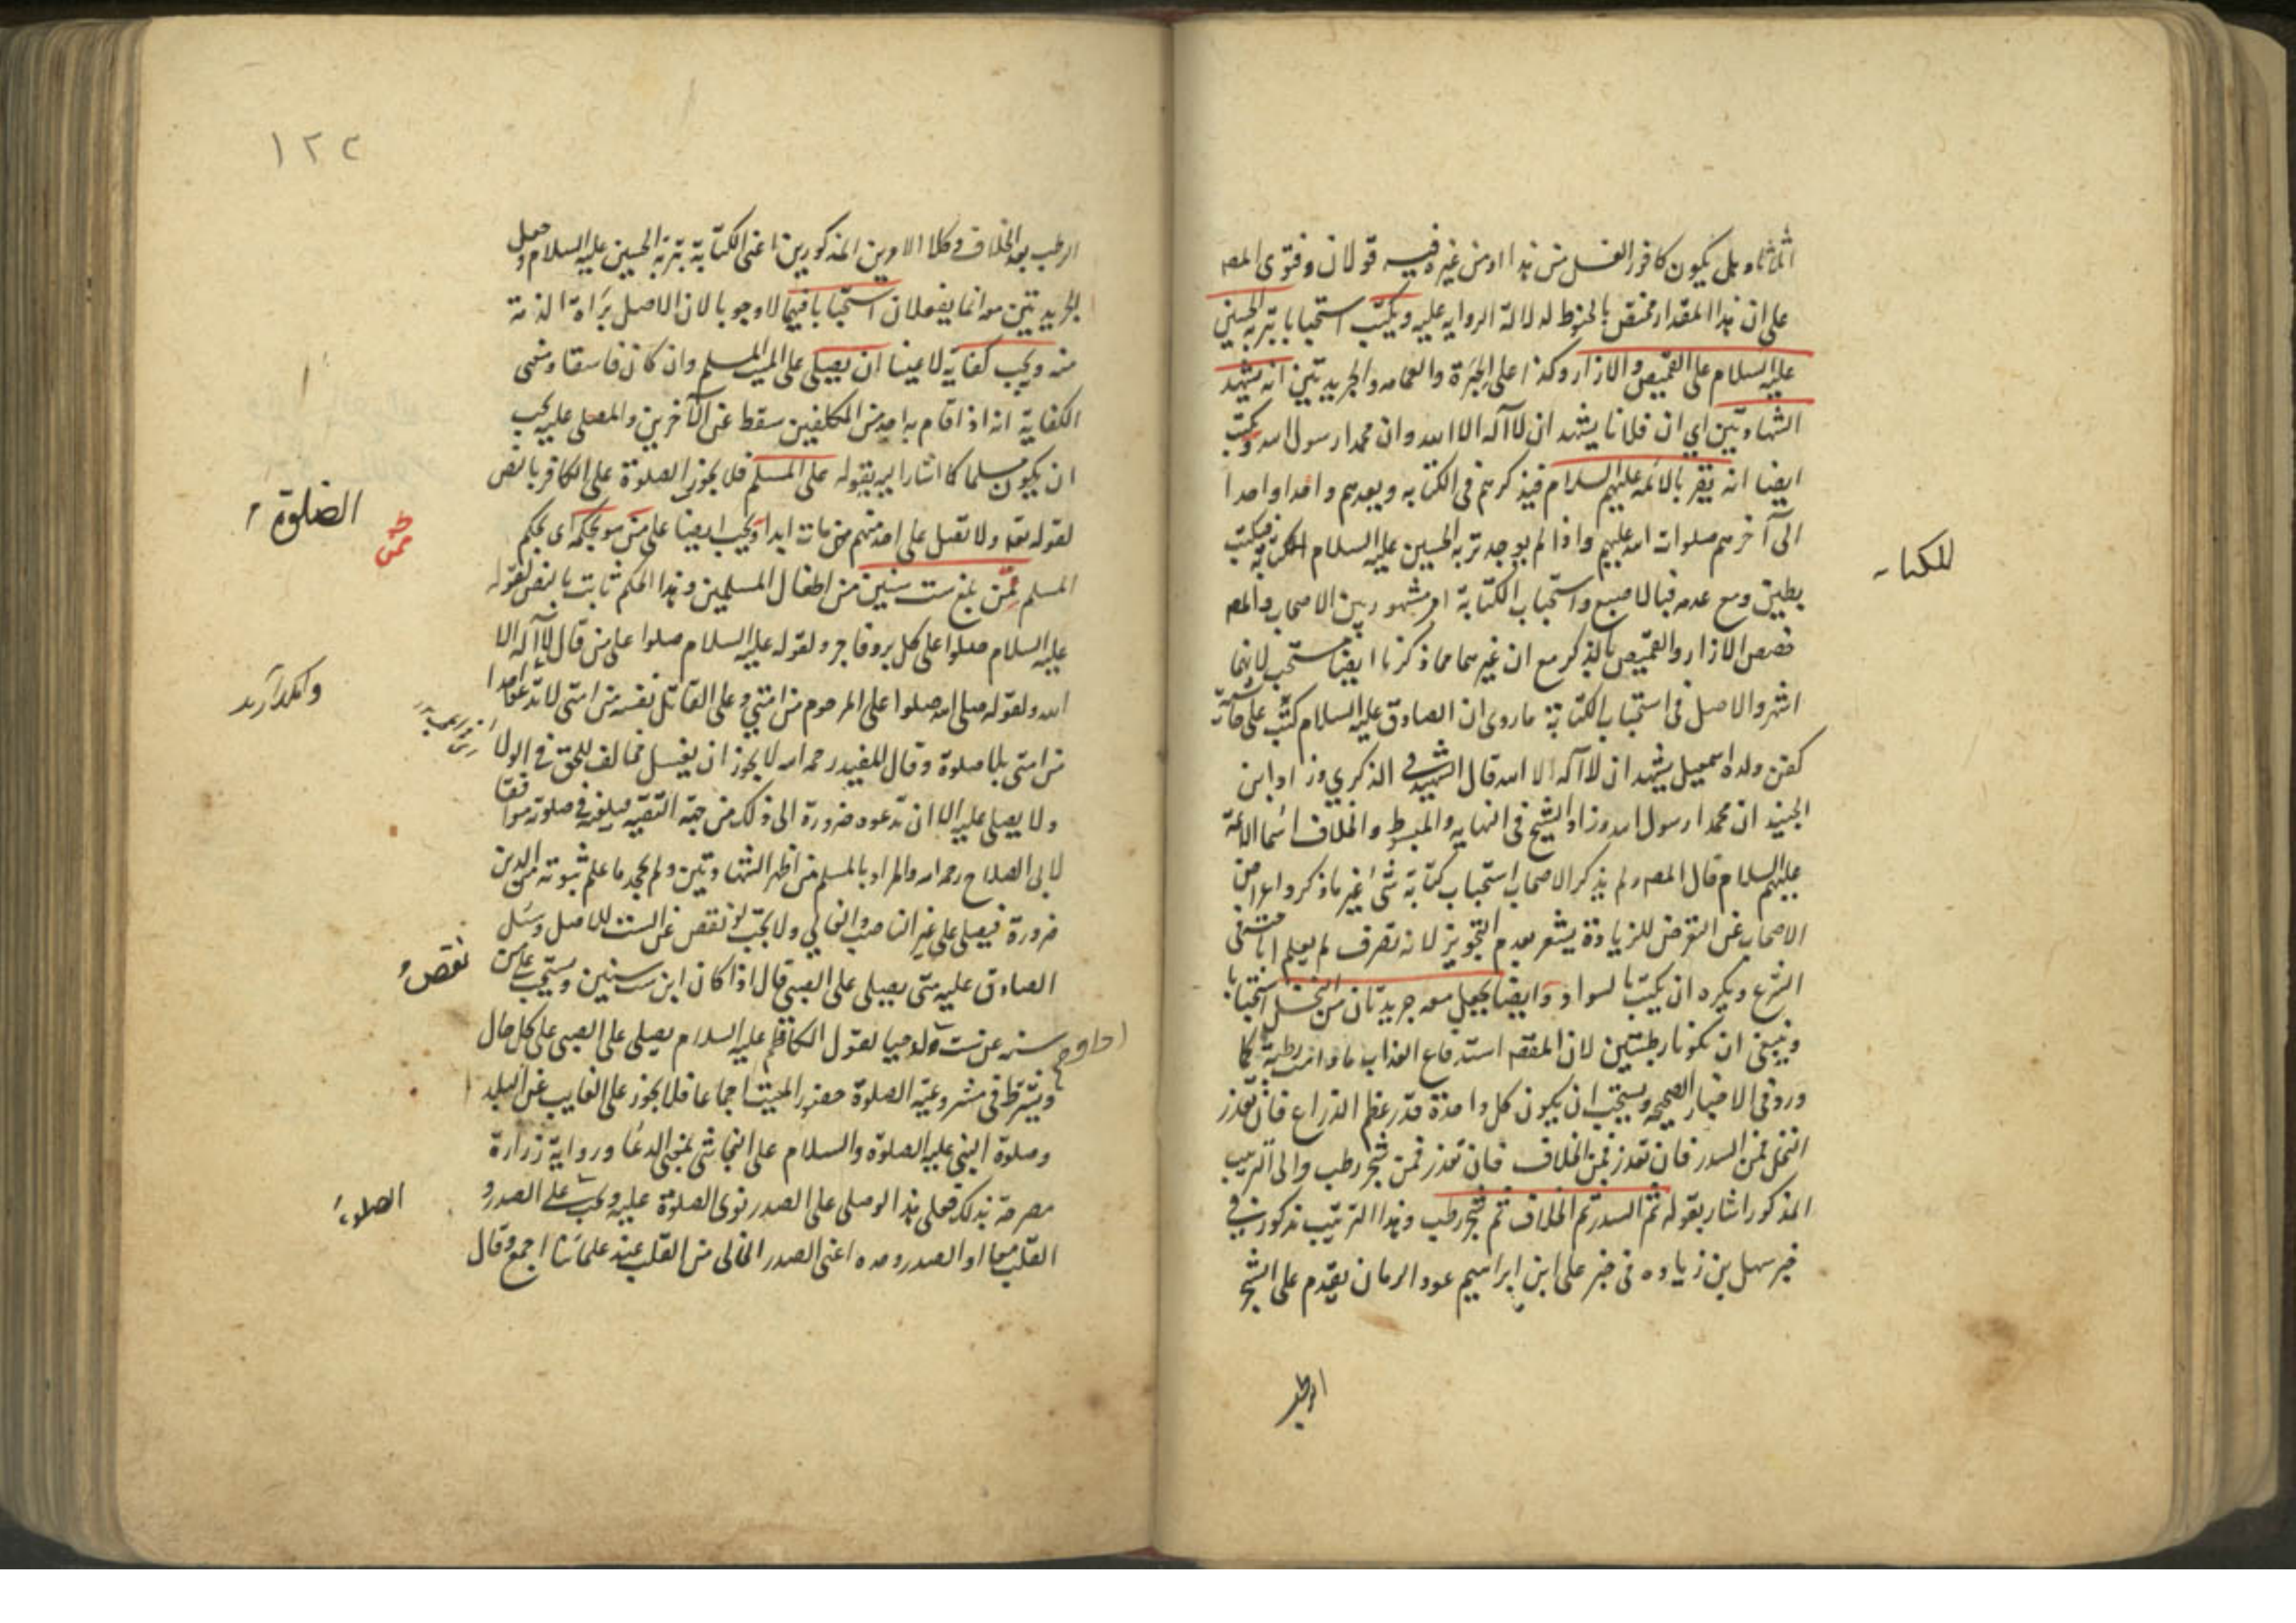 الثلثا وهل يكون كافور الغسل من هذا او من غيره فيه قولان وفتوى المصـ
على ان هذا المقدار مختص بالحنوط لدلالة الرواية عليه ويكتب استحبابا بتربة الحسين
عليه السلام على القميص والازار وكذا على الحبرة والعمامه والجريدتين انه يشهد
الشهادتين اي ان فلانا يشهد ان لا آله الا الله وان محمدا رسول الله ويكتب
ايضا انه يقر بالائمة عليهم السلام فيذكرهم في الكتابه ويعدهم واحدا واحدا
الى آخرهم صلوات الله عليهم واذا لم يوجد تربه الحسين عليه السلام للكتابة فيكتب
للكتابه
بطين ومع عدمه فبالاصبع واستحباب الكتابة امر مشهور بين الاصحاب والمصـ
خصص الازار والقميص بالذكر مع ان غيرهما مما ذكرنا ايضا مستحب لانهما
اشهر والاصل في استحباب الكتابة ما روى ان الصادق عليه السلام كتب على حاشية
كفن ولده اسمعيل يشهد ان لا آله الا الله قال الشهيد في الذكري وزاد ابن
الجنيد ان محمدا رسول الله وزاد الشيخ في النهايه والمبسوط والخلاف اسما الائمة
عليهم السلام قال المصـ ولم يذكر الاصحاب استحباب كتابة شئ غير ما ذكر واعراض
الاصحاب عن التعرض للزيادة يشعر بعدم التجويز لانه تصرف لم يعلم اباحته في
الشرع ويكره ان يكتب بالسواد وايضا يجعل معه جريدتان من النخل استحبابا
وينبغي ان تكونا رطبتين لان المقصـ استدفاع العذاب ما دامت رطبة كما
ورد في الاخبار الصحيحه ويستحب ان يكون كل واحدة قدر عظم الذراع فان تعذر
النخل فمن السدر فان تعذر فمن الخلاف فان تعذر فمن شجر رطب والى الترتيب
المذكور اشار بقوله ثم السدر ثم الخلاف ثم شجر رطب وهذا الترتيب مذكور في
خبر سهل بن زياد وه في خبر على ابن ابراهيم عود الرمان يقدم على الشجر
الرطب
١٢٣
الرطب بعد الخلاف وكلا الامرين المذكورين اعنى الكتابة بتربة الحسين عليه السلام وجعل
الجريدتين معه انما يفعلان استحبابا فيهما لا وجوبا لان الاصل برآة الذمة
منه ويجب كفاية لا عينا ان يصلى على الميت المسلم وان كان فاسقا ومعنى
الكفاية انه اذا قام به احد من المكلفين سقط عن الآخرين والمصلى عليه يجب
ان يكون مسلما كما اشار اليه بقوله على المسلم فلا يجوز الصلوة على الكافر بالنص
الصلوة
لقوله تعـ ولا تصل على احد منهم مات ابدا ويجب ايضا على من هو بحكمه اى بحكم
المسلم ممن بلغ ست سنين من اطفال المسلمين وهذا الحكم ثابت بالنص لقوله
عليه السلام صلوا على كل بر وفاجر ولقوله عليه السلام صلوا على من قال لا آله الا
الله ولقوله صلى الله صلوا على المرحوم من امتي وعلى القاتل نفسه من امتى لا تدعوا احدا
من امتى بلا صلوة وقال المفيد رحمه الله لا يجوز ان يغسل مخالف للحق في الولا
ولا يصلى عليه الا ان تدعوه ضرورة الى ذلك من جهة التقية فيلعنه في صلوته موافقا
لابي الصلاح رحمه الله والمراد بالمسلم من اظهر الشهادتين ولم يجحد ما علم ثبوته من الدين
ضرورة فيصلى على غير الناصب والغالي ولا يجب لو نقص عن الست للاصل وسئل
نقص
الصادق عليه متى يصلى على الصبى قال اذا كان ابن ست سنين ويستحب على من
سنه عن ست ولد حيا لقول الكاظم عليه السلام يصلى على الصبى على كل حال
ويشترط في مشروعية الصلوة حضور الميت اجماعا فلا يجوز على الغايب عن البلد
وصلوة النبي عليه الصلوة والسلام على النجاشي بمعنى الدعا ورواية زرارة
مصرحة بذلك فعلى هذا لو صلى على الصدر نوى الصلوة عليه ويجب على الصدر و
الصلوة
القلب معا او الصدر وحده اعنى الصدر الخالى من القلب عند علمائنا اجمع وقال